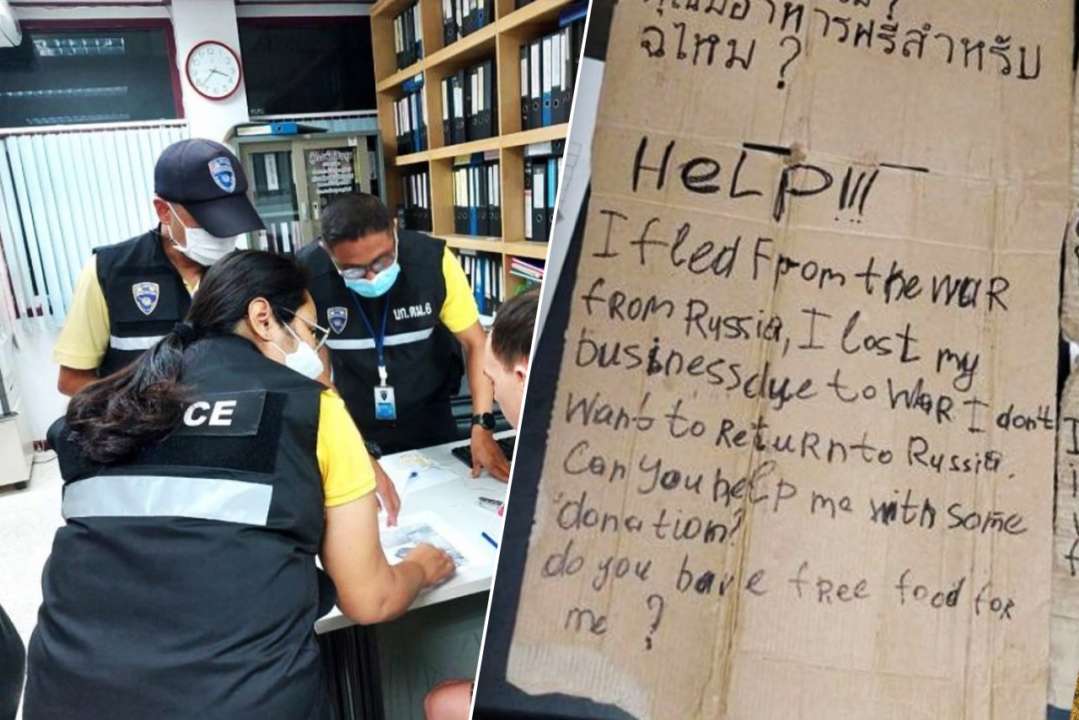 CE
บก.ตม.6
คุณมีอาหารฟรีสำหรับ
ฉไหม ?
HeLp!!!
I fled From the WaR
fROM Russia, I lost my
business due to WaR I don't
Want to RetuRn to Russia.
Can you help me with some
donation?
do you have fRee food foR
me ?